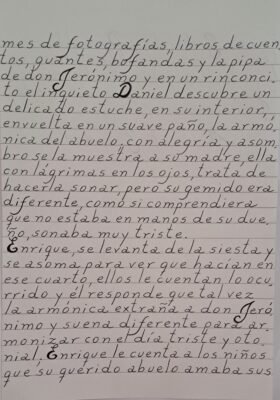 mes de fotografías, libros de cuen
tos, guantes, bofandas y la pipa
de don Jerónimo y en un rinconci.
to el inquieto Daniel descubre un
delicado estuche, en su interior,
envuelta en un suave paño, la armó
nica del abuelo, con alegría y asom.
bro se la muestra a su madre, ella
con lágrimas en los ojos, trata de
hacerla sonar, pero su gemido era
diferente, como si comprendiera
que no estaba en manos de su due.
ño, sonaba muy triste.
Enrique, se levanta de la siesta y
se asoma para ver que hacían en
ese cuarto, ellos le cuentan lo ocu.
rrido y él responde que tal vez
la armónica extraña a don Jeró
nimo y suena diferente para ar.
monizar con el día triste y oto.
nial, Enrique le cuenta a los niños
que su querido abuelo amaba sus